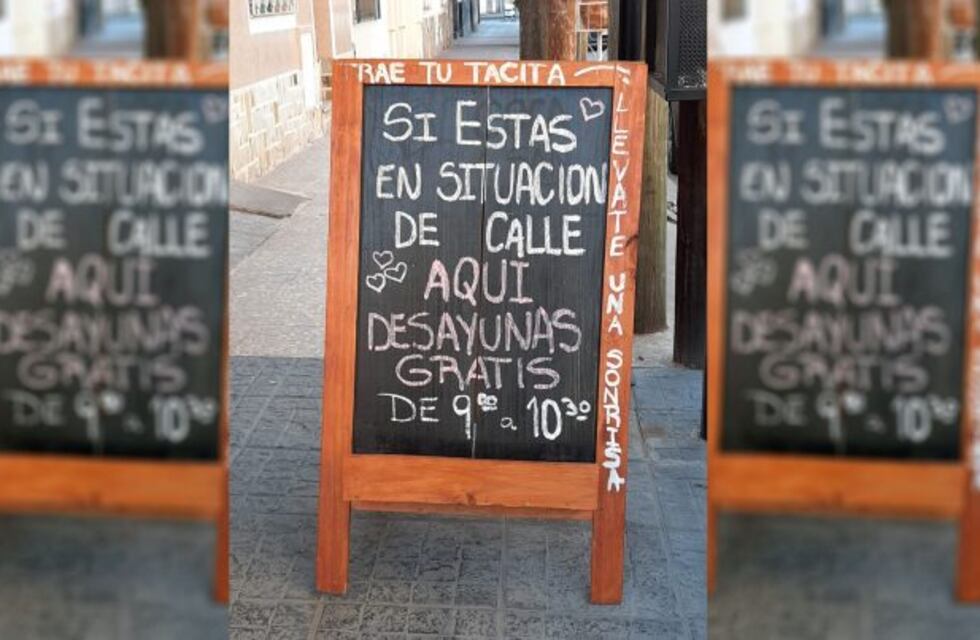 TRAE TU TACITA
LLEVATE UNA SONRISA
SI ESTAS
EN SITUACION
DE CALLE
AQUI
DESAYUNAS
GRATIS
DE 9⁰⁰ a 10³⁰